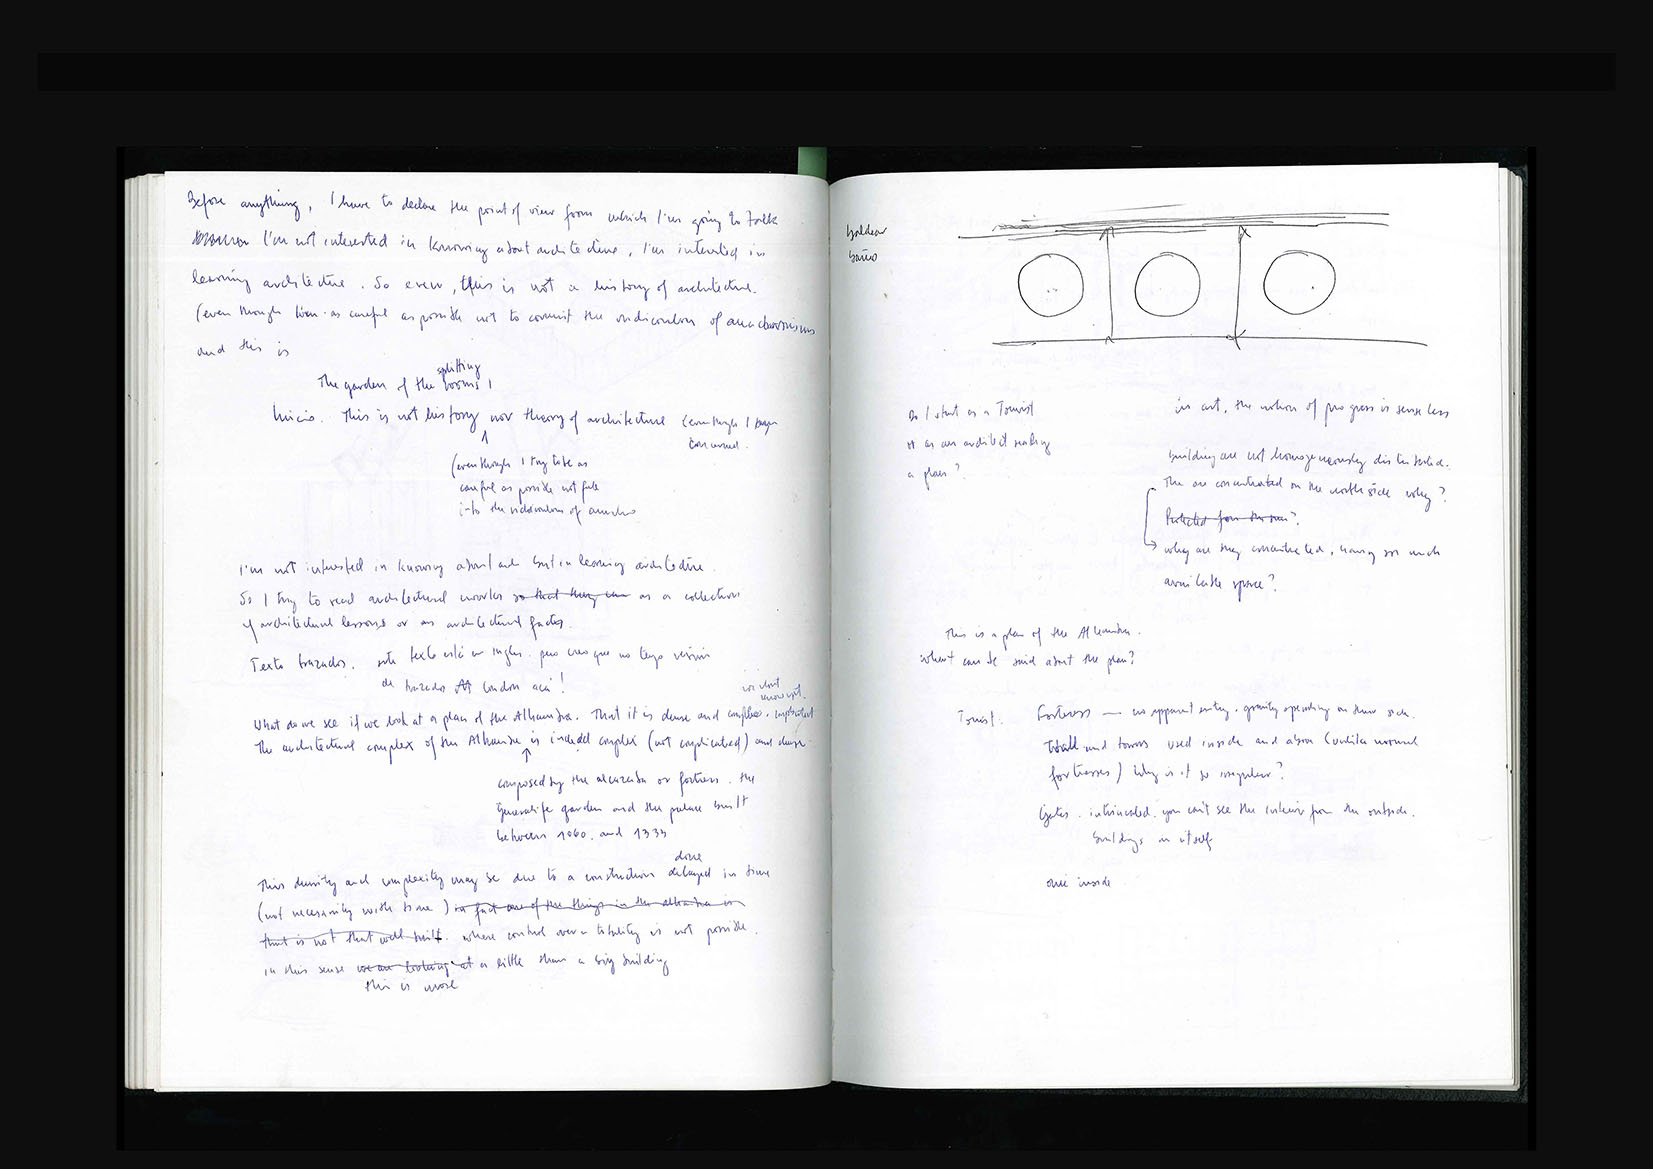 Before anything, I have to declare the point of view from which I'm going to talk
I'm not interested in knowing about architecture, I'm interested in
learning architecture. So even, this is not a history of architecture.
(even though I am as careful as possible not to commit the ridiculous of anachronisms
and this is
splitting
The garden of the rooms
Inicio. This is not history nor theory of architecture (even though I
concerned.
(even though I try to be as
careful as possible not fall
into the ridiculous of
I'm not interested in knowing about but in learning architecture.
So I try to read architectural works so that they can as a collection
of architectural lessons or as architectural facts.
Texto trazados. este texto está en ingles. pero creo que no tengo versión
de trazados London acá!
we don't
know yet.
What do we see if we look at a plan of the Alhambra. That it is dense and complex.
The architectural complex of the Alhambra is indeed complex (not complicated) and dense
composed by the alcazaba or fortress. the
Generalife garden and the palace built
between 1060. and 1333
done
This density and complexity may be due to a construction delayed in time
(not necessarily with time) in fact one of the things in the alhambra is
that is not that well built. where control over a totality is not possible.
in this sense we are looking at a little than a big building
this is more
baldear
baño
Do I start as a Tourist
or as an architect reading
a plan?
in art, the notion of progress is senseless
building are not homogeneously distributed.
The are concentrated on the north side why?
Protected from the sun?
why are they concentrated, having so much
available space?
This is a plan of the Alhambra.
What can be said about the plan?
Tourist: Fortress — no apparent entry. gravity opending on their side.
Wall and towers used inside and above (unlike normal
fortresses) Why is it so irregular?
Gates. intrincated. you can't see the interior from the outside.
buildings in itself
once inside